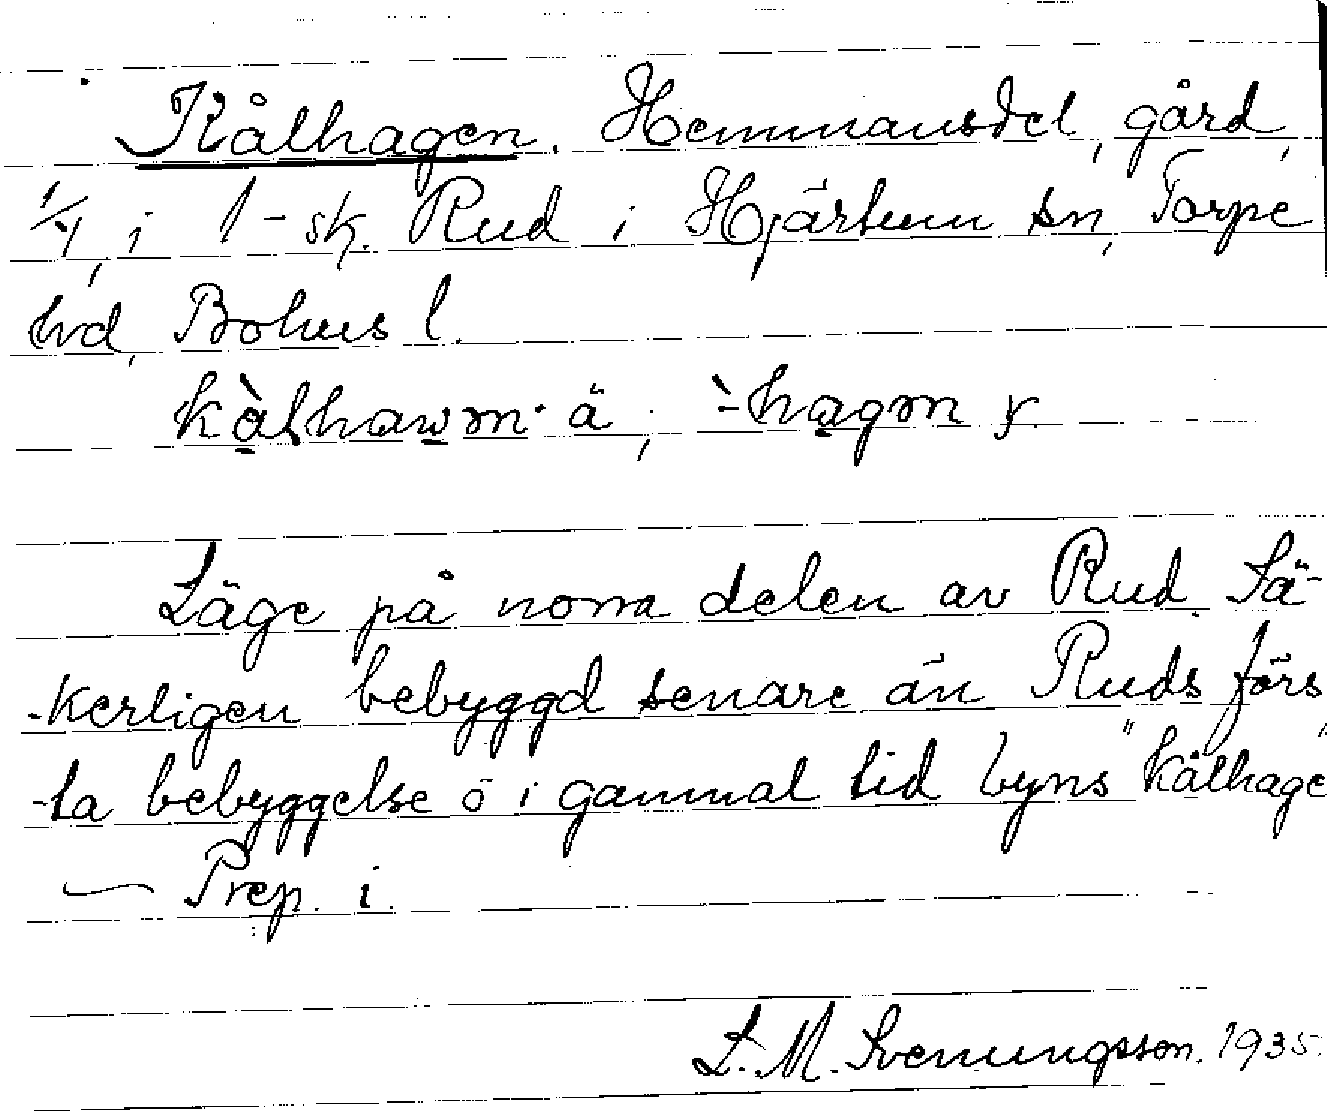 Kålhagen. Hemmansdel, gård,
1/4, i 1-sk. Rud i Hjärtum sn, Torpe
hd, Bohus l.
kålhawm. ä, -hagm y.
Läge på norra delen av Rud. Sä-
-kerligen bebyggd senare än Ruds förs
-ta bebyggelse o i gammal tid byns "kålhage"
— Prep. i.
L. M. Svenungsson. 1935.